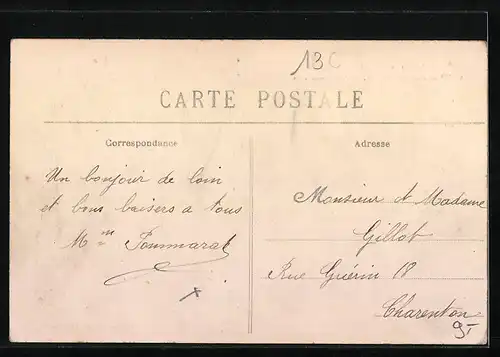 13C
CARTE POSTALE
Correspondance
Un bonjour de loin
et bons baisers a tous
Mme Pommarat
Adresse
Monsieur et Madame
Gillot
Rue Guérin 18
Charenton
9-